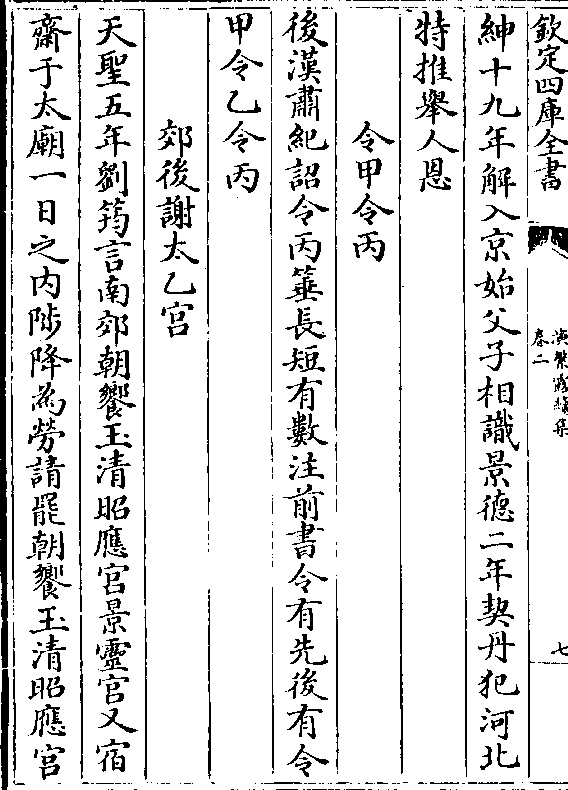 欽定四庫全書
演繁露續集
卷二
七
紳十九年解入京始父子相識景德二年契丹犯河北
特推舉人恩
令甲令丙
後漢肅紀詔令丙箠長短有數注前書令有先後有令
甲令乙令丙
郊後謝太乙宮
天聖五年劉筠言南郊朝饗玉清昭應宮景靈宮又宿
齋于太廟一日之内陟降為勞請罷朝饗玉清昭應宮